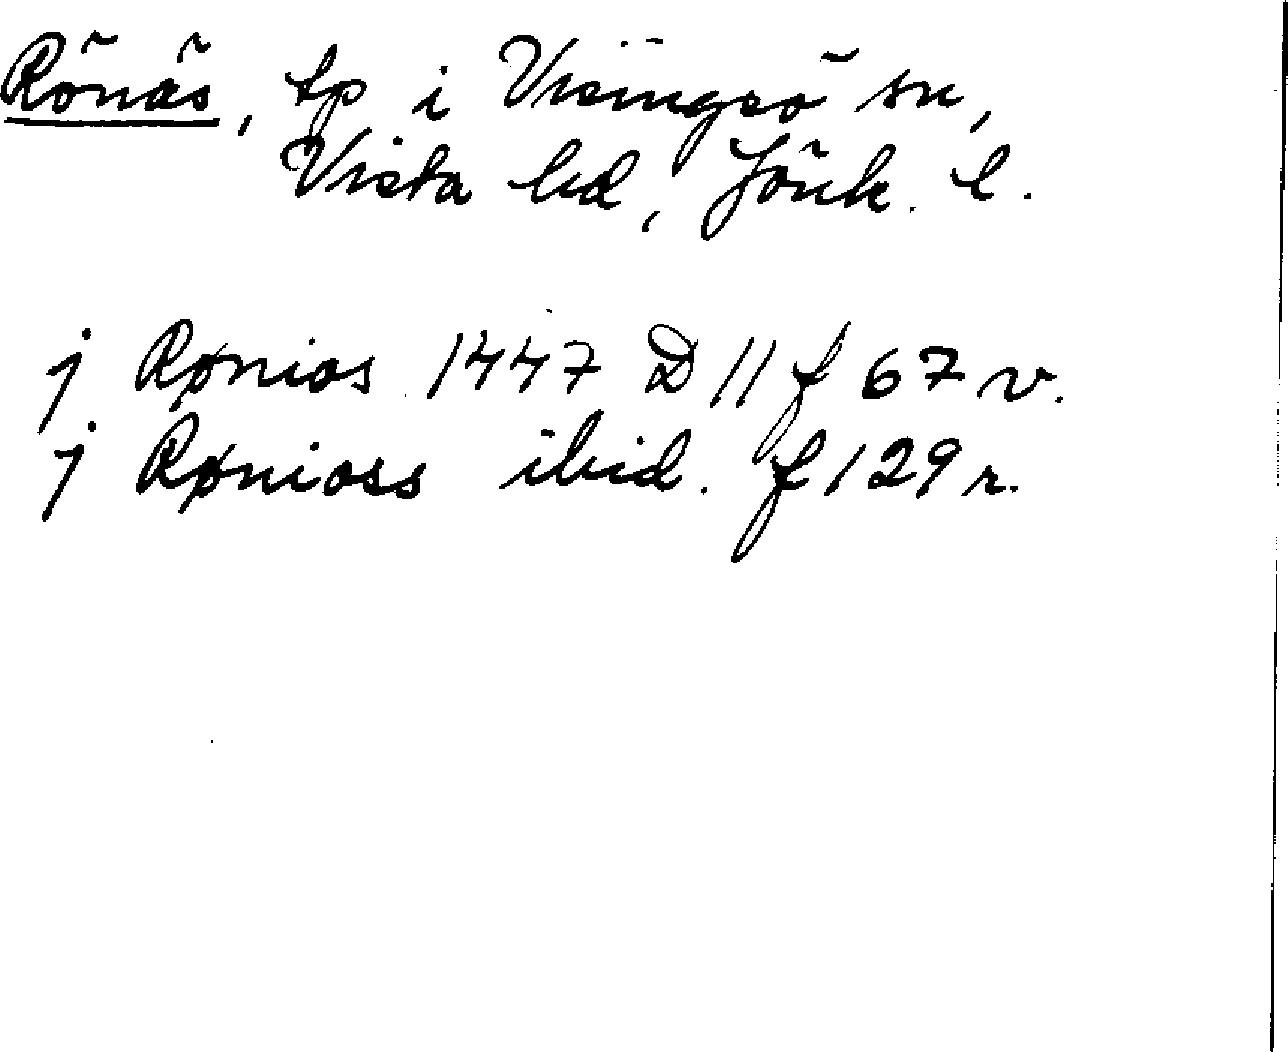 Rönäs, tp i Visingsö sn,
Vista hd, Jönk. l.
j Rønios 1447 D 11 f 67 v.
j Rønioss ibid. f 129 r.